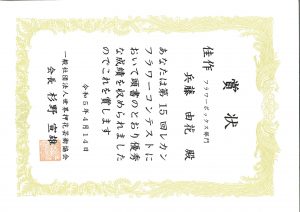 賞状
フラワーボックス部門
佳作
兵藤 由花 殿
あなたは第15回レカン
フラワーコンテストに
おいて頭書のとおり優秀
な成績を収められました
のでこれを賞します
令和5年4月14日
一般社団法人世界押花芸術協会
会長 杉野 宣雄